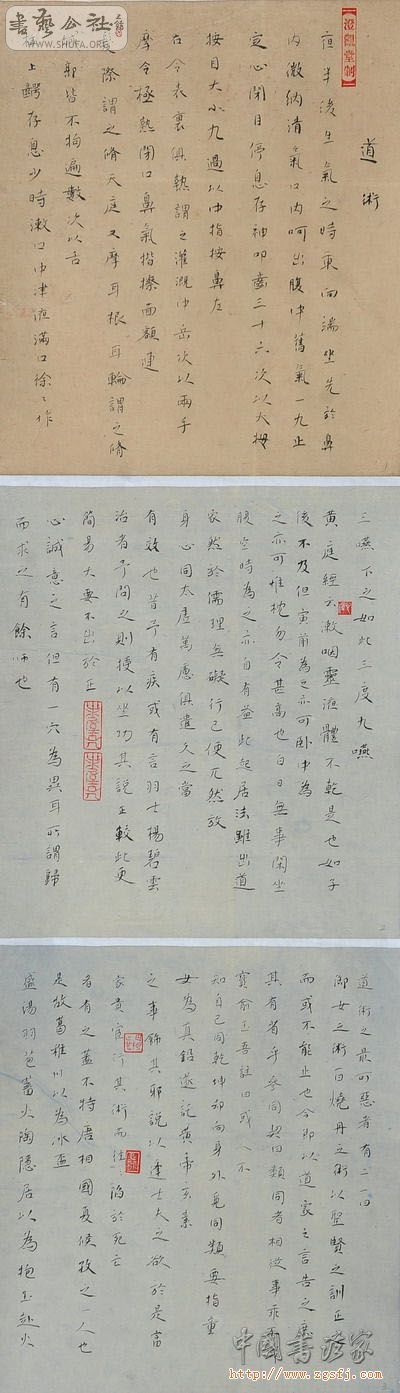 道術
夜半後生氣之時東向端坐先於鼻
內微納清氣口內呵出腹中舊氣一九止
定心閉目停息存神叩齒三十六次以大拇
按目大小九過以中指按鼻左
右令表裏俱熱謂之灌溉中岳次以兩手
摩令極熱閉口鼻氣揩擦面額連
際謂之脩天庭又摩耳根耳輪謂之脩
郭皆不拘遍數次以舌
上齶存息少時漱口中津液滿口徐徐作
三嚥下之如此三度九嚥
黃庭經云漱咽靈液體不乾是也如子
後不及但寅前為之亦可臥中為
之亦可惟枕勿令甚高也白日無事閑坐
腹空時為之亦自有益此起居法雖出道
家然於儒理無礙行已便兀然放
身心同太虛萬慮俱遣久之當
有效也昔予有疾或有言羽士楊碧雲
治者予問之則授以坐功其說正較此更
簡易大要不出於正
心誠意之言但有一穴為異耳所謂歸
而求之有餘師也
道術之最可惡者有二一曰
御女之術一曰燒丹之術以聖賢之訓正
而或不能止也今即以道家之言告之庶
其有省乎參同契曰類同者相從事乖不
寶俞玉吾註曰或人不
知自己同乾坤卻向身外覓同類要指童
女為真鉛遂託黃帝玄素
之事飾其邪說以逢士夫之欲於是富
家貴宦行其術而往陷於死亡
者有之蓋不特唐相國夏侯孜之一人也
是故葛稚川以為冰盃
盛湯羽苞蓄火陶隱居以為抱玉赴火
書藝公社
WWW.SHUFA.ORG
中國書法家
http://www.zgsfj.com